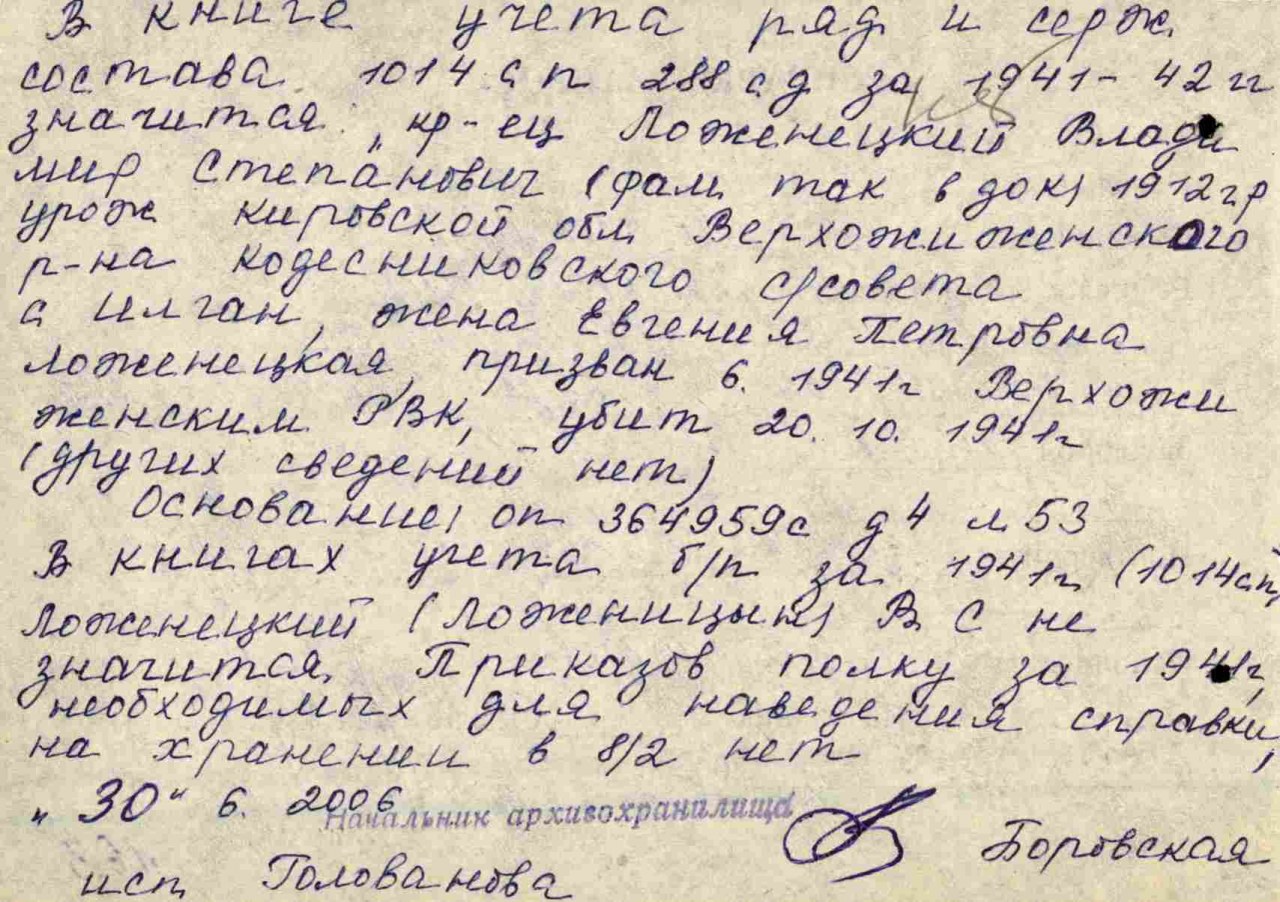 В книге учета ряд и серж
состава 1014 сп 288 сд за 1941-42 гг
значится: „кр-ец Ложенецкий Влади
мир Степанович (фам. так в док) 1912 г р
урож Кировской обл. Верхожиженского
р-на Кодесниковского с/совета
с Илган, жена Евгения Петровна
Ложенецкая, призван 6. 1941г Верхожи
женским РВК, убит 20. 10. 1941г
(других сведений нет)
Основание: оп 364959с д 4 л 53
В книгах учета б/п за 1941г. (1014сп)
Ложенецкий (Ложеницын) В. С не
значится. Приказов полку за 1941г,
необходимых для наведения справки,
на хранении в 8/2 нет
„30“ 6. 2006
Начальник архивохранилища
Боровская
исп Голованова